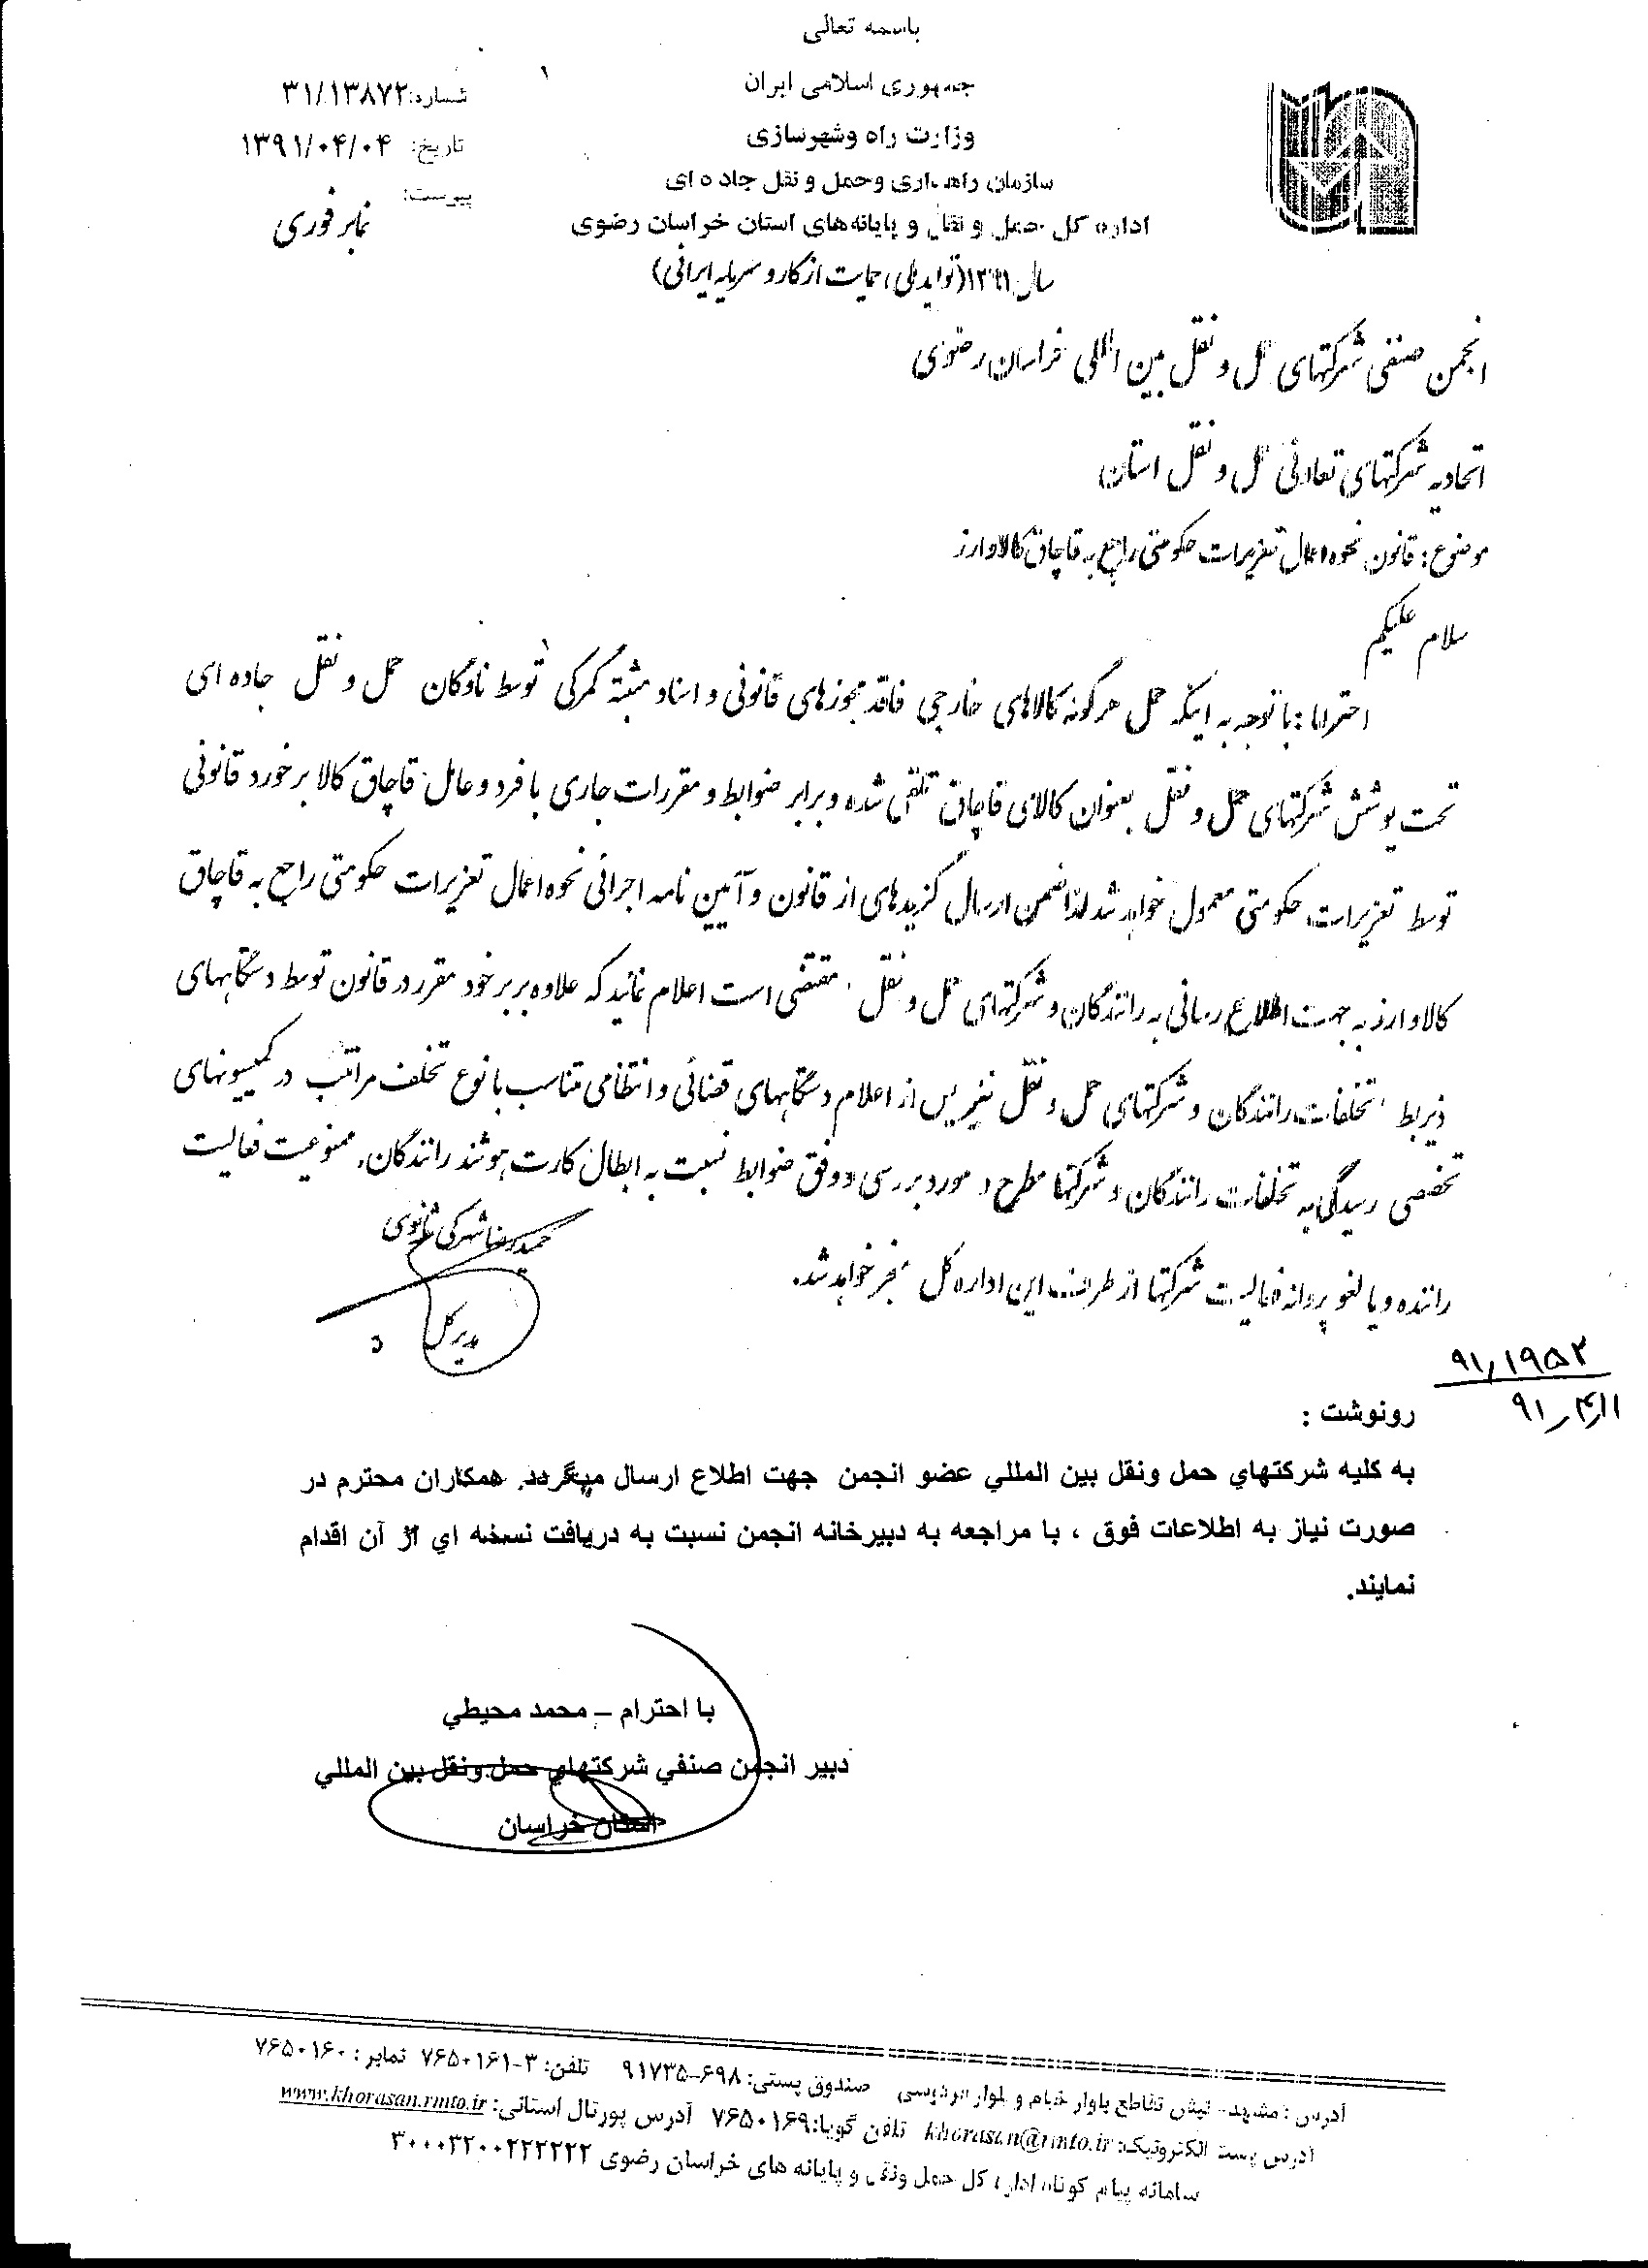 باسمه تعالی
جمهوری اسلامی ایران
وزارت راه وشهرسازی
سازمان راهداری وحمل و نقل جاده ای
اداره کل حمل و نقل و پایانه‌های استان خراسان رضوی
سال ۱۳۹۱(تولید ملی، حمایت از کار و سرمایه ایرانی)
شماره: ۳۱/۱۳۸۷۲
تاریخ: ۱۳۹۱/۰۴/۰۴
پیوست:
نمابر فوری
انجمن صنفی شرکتهای حمل و نقل بین المللی خراسان رضوی
اتحادیه شرکتهای تعاونی حمل و نقل استان
موضوع: قانون نحوه اعمال تعزیرات حکومتی راجع به قاچاق کالا و ارز
سلام علیکم
احتراما: با توجه به اینکه حمل هرگونه کالاهای خارجی فاقد مجوزهای قانونی و اسناد مثبته گمرکی توسط ناوگان حمل و نقل جاده ای
تحت پوشش شرکتهای حمل و نقل بعنوان کالای قاچاق تلقی شده و برابر ضوابط و مقررات جاری با فرد و عامل قاچاق کالا برخورد قانونی
توسط تعزیرات حکومتی معمول خواهد شد لذا ضمن ارسال گزیده‌ای از قانون و آیین نامه اجرائی نحوه اعمال تعزیرات حکومتی راجع به قاچاق
کالا و ارز به جهت اطلاع رسانی به رانندگان و شرکتهای حمل و نقل مقتضی است اعلام نمائید که علاوه بر برخورد مقرر در قانون توسط دستگاههای
ذیربط تخلفات رانندگان و شرکتهای حمل و نقل نیز پس از اعلام دستگاههای قضائی و انتظامی متناسب با نوع تخلف مراتب در کمیسیونهای
تخصصی رسیدگی به تخلفات رانندگان و شرکتها مطرح و مورد بررسی و وفق ضوابط نسبت به ابطال کارت هوشمند رانندگان، ممنوعیت فعالیت
راننده و یا لغو پروانه فعالیت شرکتها از طرف این اداره کل منجر خواهد شد.
حمیدرضا شهرکی ثانوی
مدیر کل
۹۱/۱۹۵۲
۹۱/۴/۱۱
رونوشت :
به کلیه شرکتهاي حمل ونقل بین المللي عضو انجمن جهت اطلاع ارسال میگردد. همکاران محترم در
صورت نیاز به اطلاعات فوق ، با مراجعه به دبیرخانه انجمن نسبت به دریافت نسخه اي از آن اقدام
نمایند.
با احترام – محمد محیطي
دبیر انجمن صنفي شرکتهاي حمل ونقل بین المللي
استان خراسان
آدرس : مشهد- نبش تقاطع بلوار خیام و بلوار فردوسی صندوق پستی: ۶۹۸-۹۱۷۳۵ تلفن: ۳-۷۶۵۰۱۶۱ نمابر : ۷۶۵۰۱۶۰
آدرس پست الکترونیک: khorasan@rmto.ir تلفن گویا: ۷۶۵۰۱۶۹ آدرس پورتال استانی: www.khorasan.rmto.ir
سامانه پیام کوتاه اداره کل حمل ونقل و پایانه های خراسان رضوی ۳۰۰۰۳۲۰۰۲۲۲۲۲۲